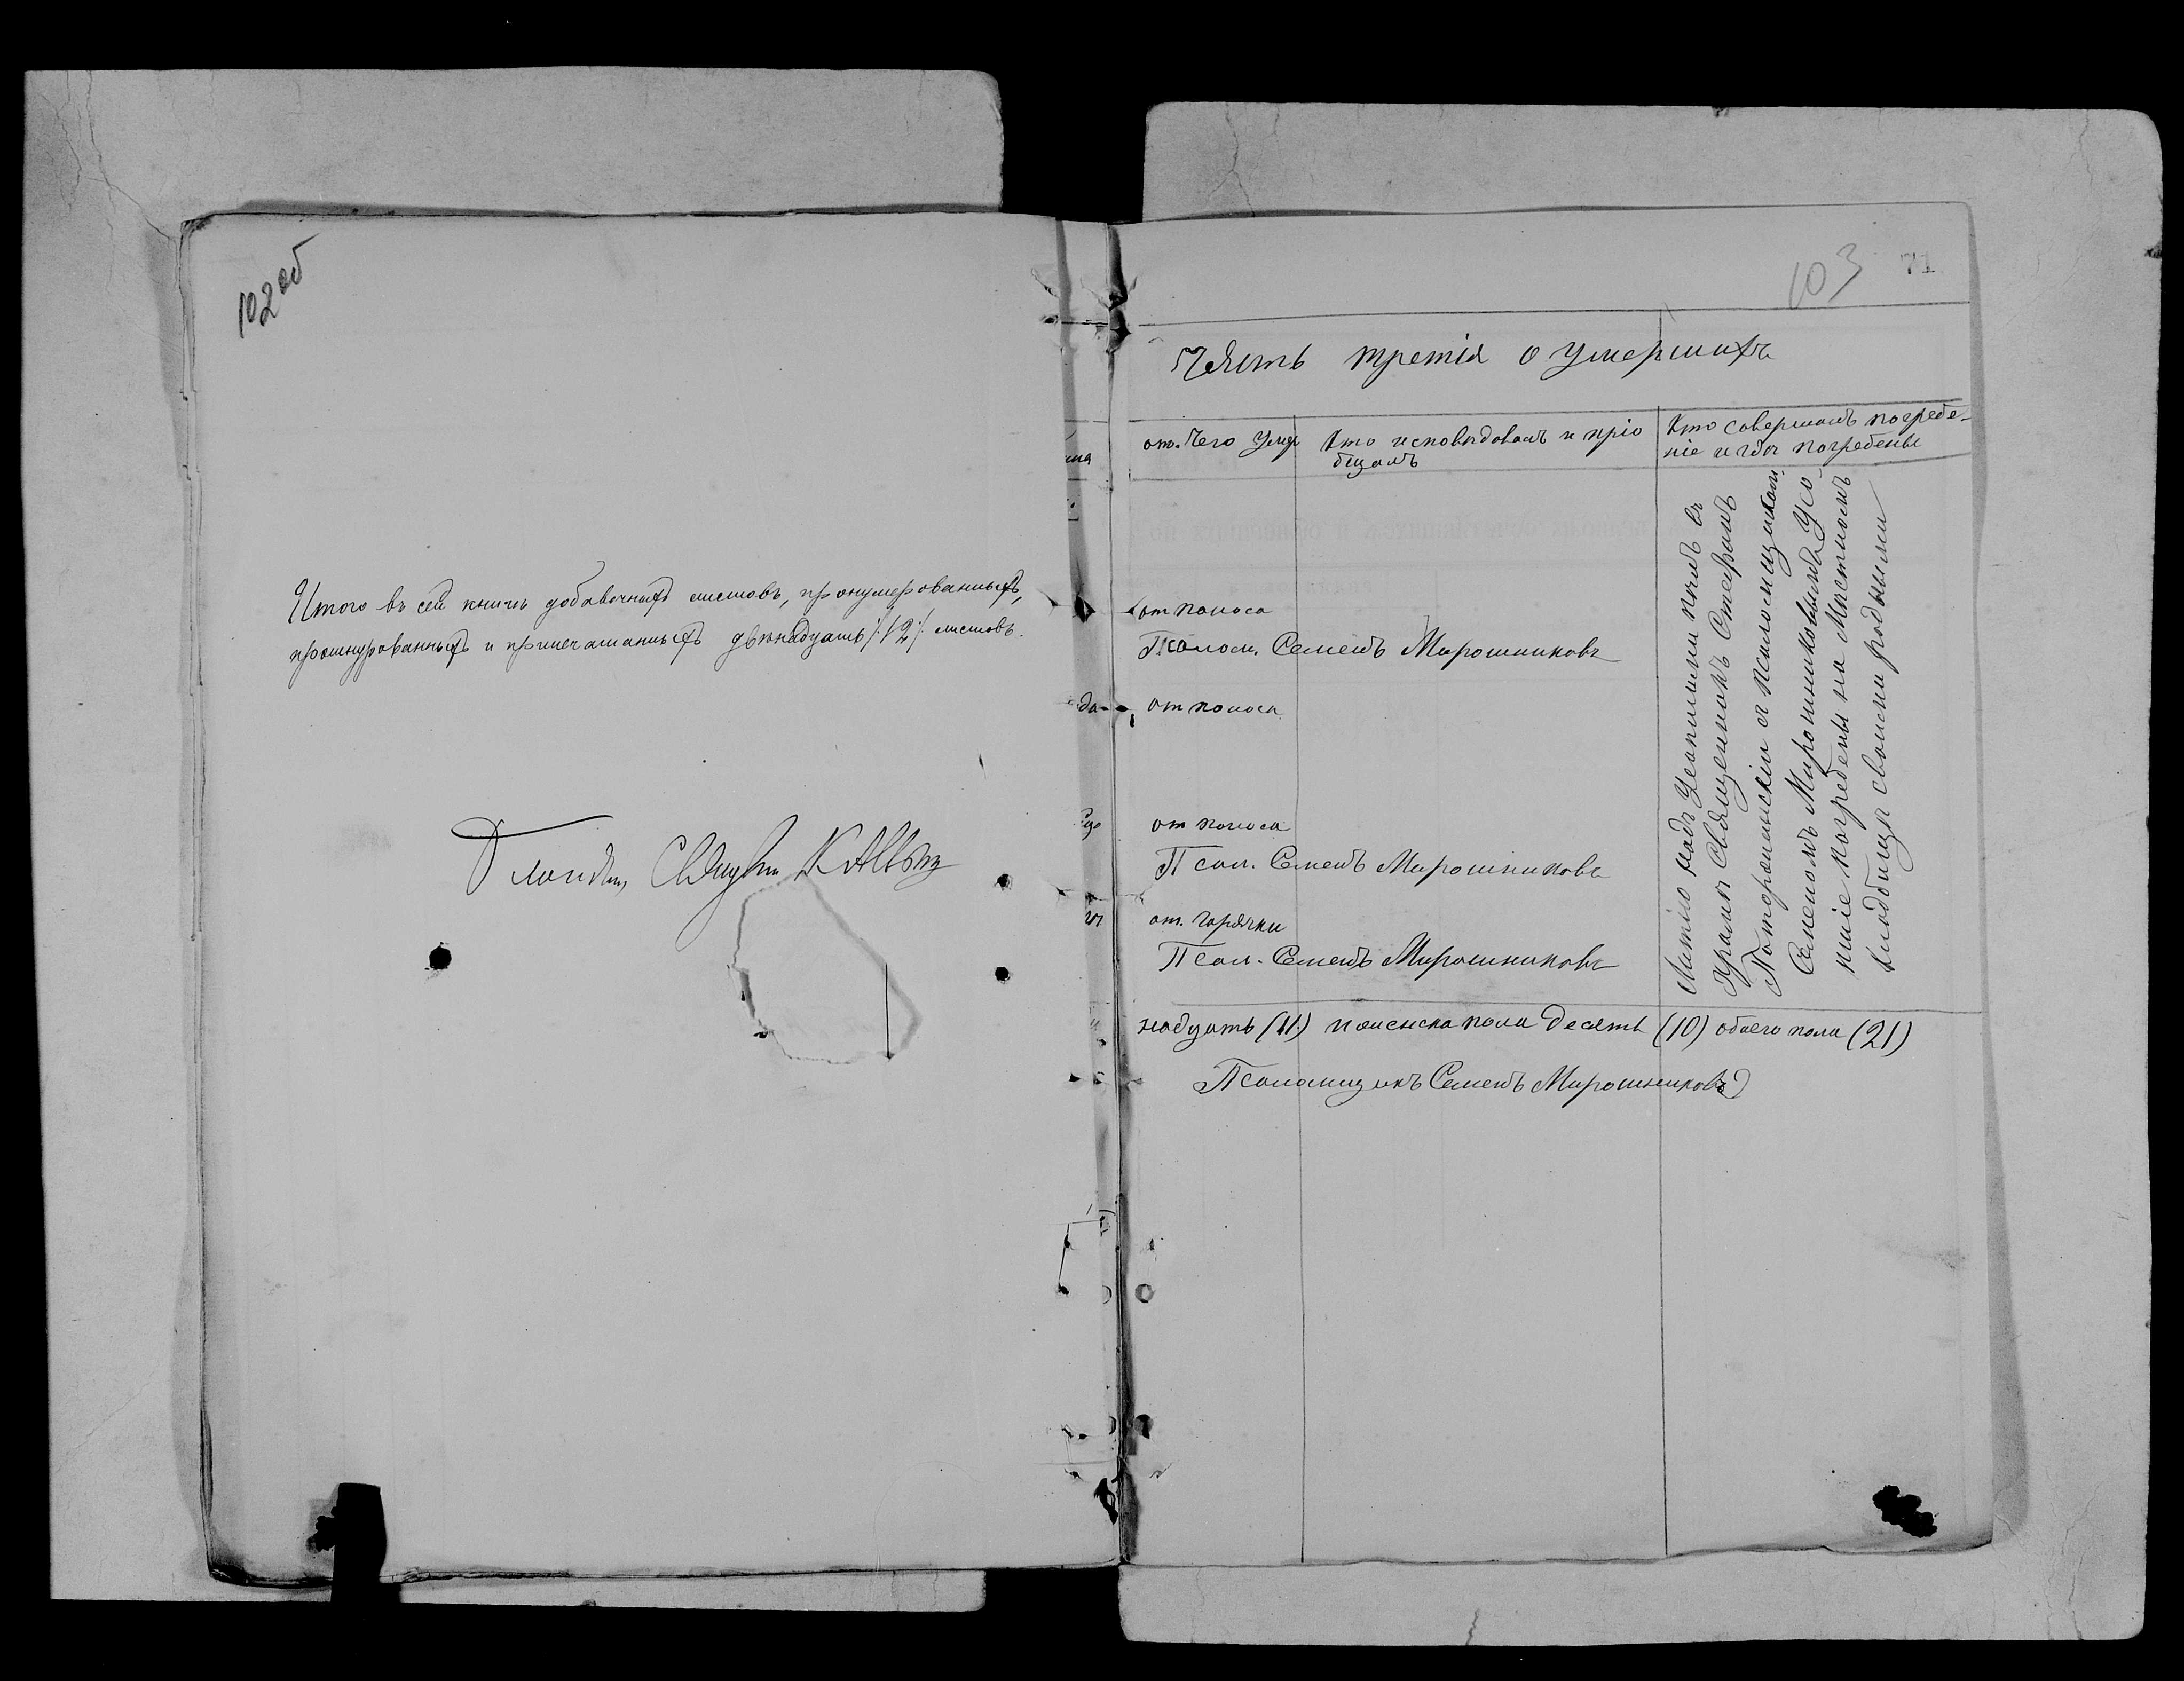 102 об
Итого въ сей книгѣ добавочныхъ листовъ, пронумерованныхъ,
прошнурованныхъ и припечатанныхъ двѣнадцать /:12:/ листовъ.
103 71
Часть третія о умершихъ
от. Чего Умер
Кто исповѣдовалъ и пріо
бщалъ
Кто совершалъ погребе-
ніе и гдѣ погребены
от поноса
Псалом. Семенъ Мирошниковъ
да
от поноса
от поноса
Псал. Семенъ Мирошниковъ
от. Горячки
Псал. Семенъ Мирошниковъ
Литію надъ Усопшими въ
храмѣ Священникъ Стефанъ
съ псаломщикомъ
Семеномъ Мирошниковымъ Усо
пшіе погребены на Мѣстномъ
кладбищѣ своими родными
надцать (11) и женска пола Десять (10) обоего пола (21)
Псаломщикъ Семенъ Мирошниковъ